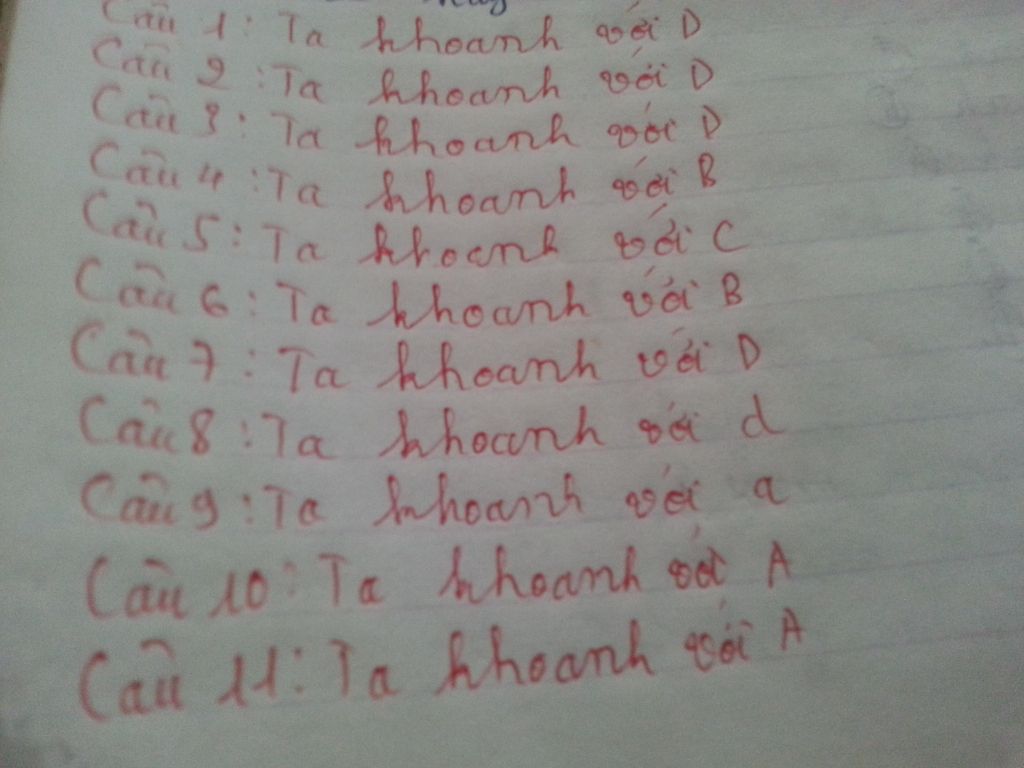 Câu 1: Ta khoanh với D
Câu 2: Ta khoanh với D
Câu 3: Ta khoanh với D
Câu 4: Ta khoanh với B
Câu 5: Ta khoanh với C
Câu 6: Ta khoanh với B
Câu 7: Ta khoanh với D
Câu 8: Ta khoanh với d
Câu 9: Ta khoanh với a
Câu 10: Ta khoanh với A
Câu 11: Ta khoanh với A